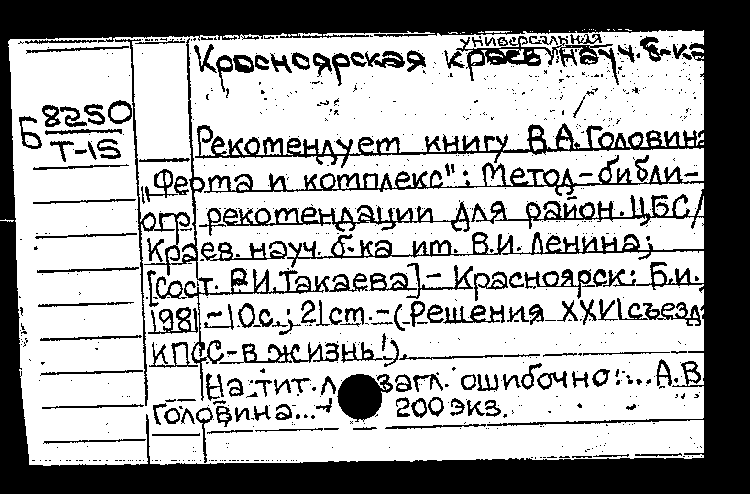 универсальная
Красноярская краев. науч. б-ка
Б 8250
Т-15
Рекомендует книгу В.А. Головина
„Ферма и комплекс": Метод-библи-
огр. рекомендации для район. ЦБС/
Краев. науч. б-ка им. В.И. Ленина;
[Сост. Р.И. Такаева].- Красноярск: Б.и.,
1981.-10с.; 21 см.-(Решения XXVI съезда
КПСС-в жизнь!).
На тит. л. загл. ошибочно: ... А.В.
Головина...- 200 экз.